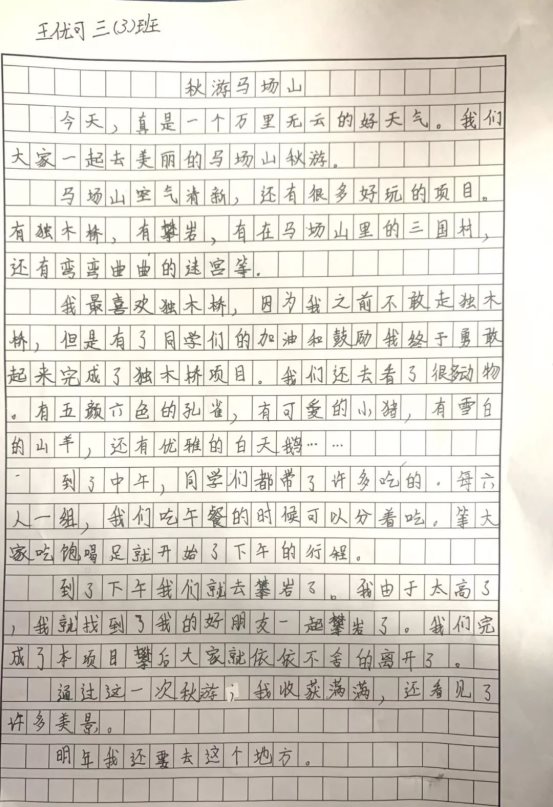 王优可 三(3)班
秋游马场山
今天，真是一个万里无云的好天气。我们
大家一起去美丽的马场山秋游。
马场山空气清新，还有很多好玩的项目。
有独木桥，有攀岩，有在马场山里的三国村，
还有弯弯曲曲的迷宫等。
我最喜欢独木桥，因为我之前不敢走独木
桥，但是有了同学们的加油和鼓励我终于勇敢
起来完成了独木桥项目。我们还去看了很多动物
。有五颜六色的孔雀，有可爱的小猪，有雪白
的山羊，还有优雅的白天鹅……
到了中午，同学们都带了许多吃的。每六
人一组，我们吃午餐的时候可以分着吃。等大
家吃饱喝足就开始了下午的行程。
到了下午我们就去攀岩了。我由于太高了
，我就找到了我的好朋友一起攀岩了。我们完
成了本项目攀后大家就依依不舍的离开了。
通过这一次秋游，我收获满满，还看见了
许多美景。
明年我还要去这个地方。